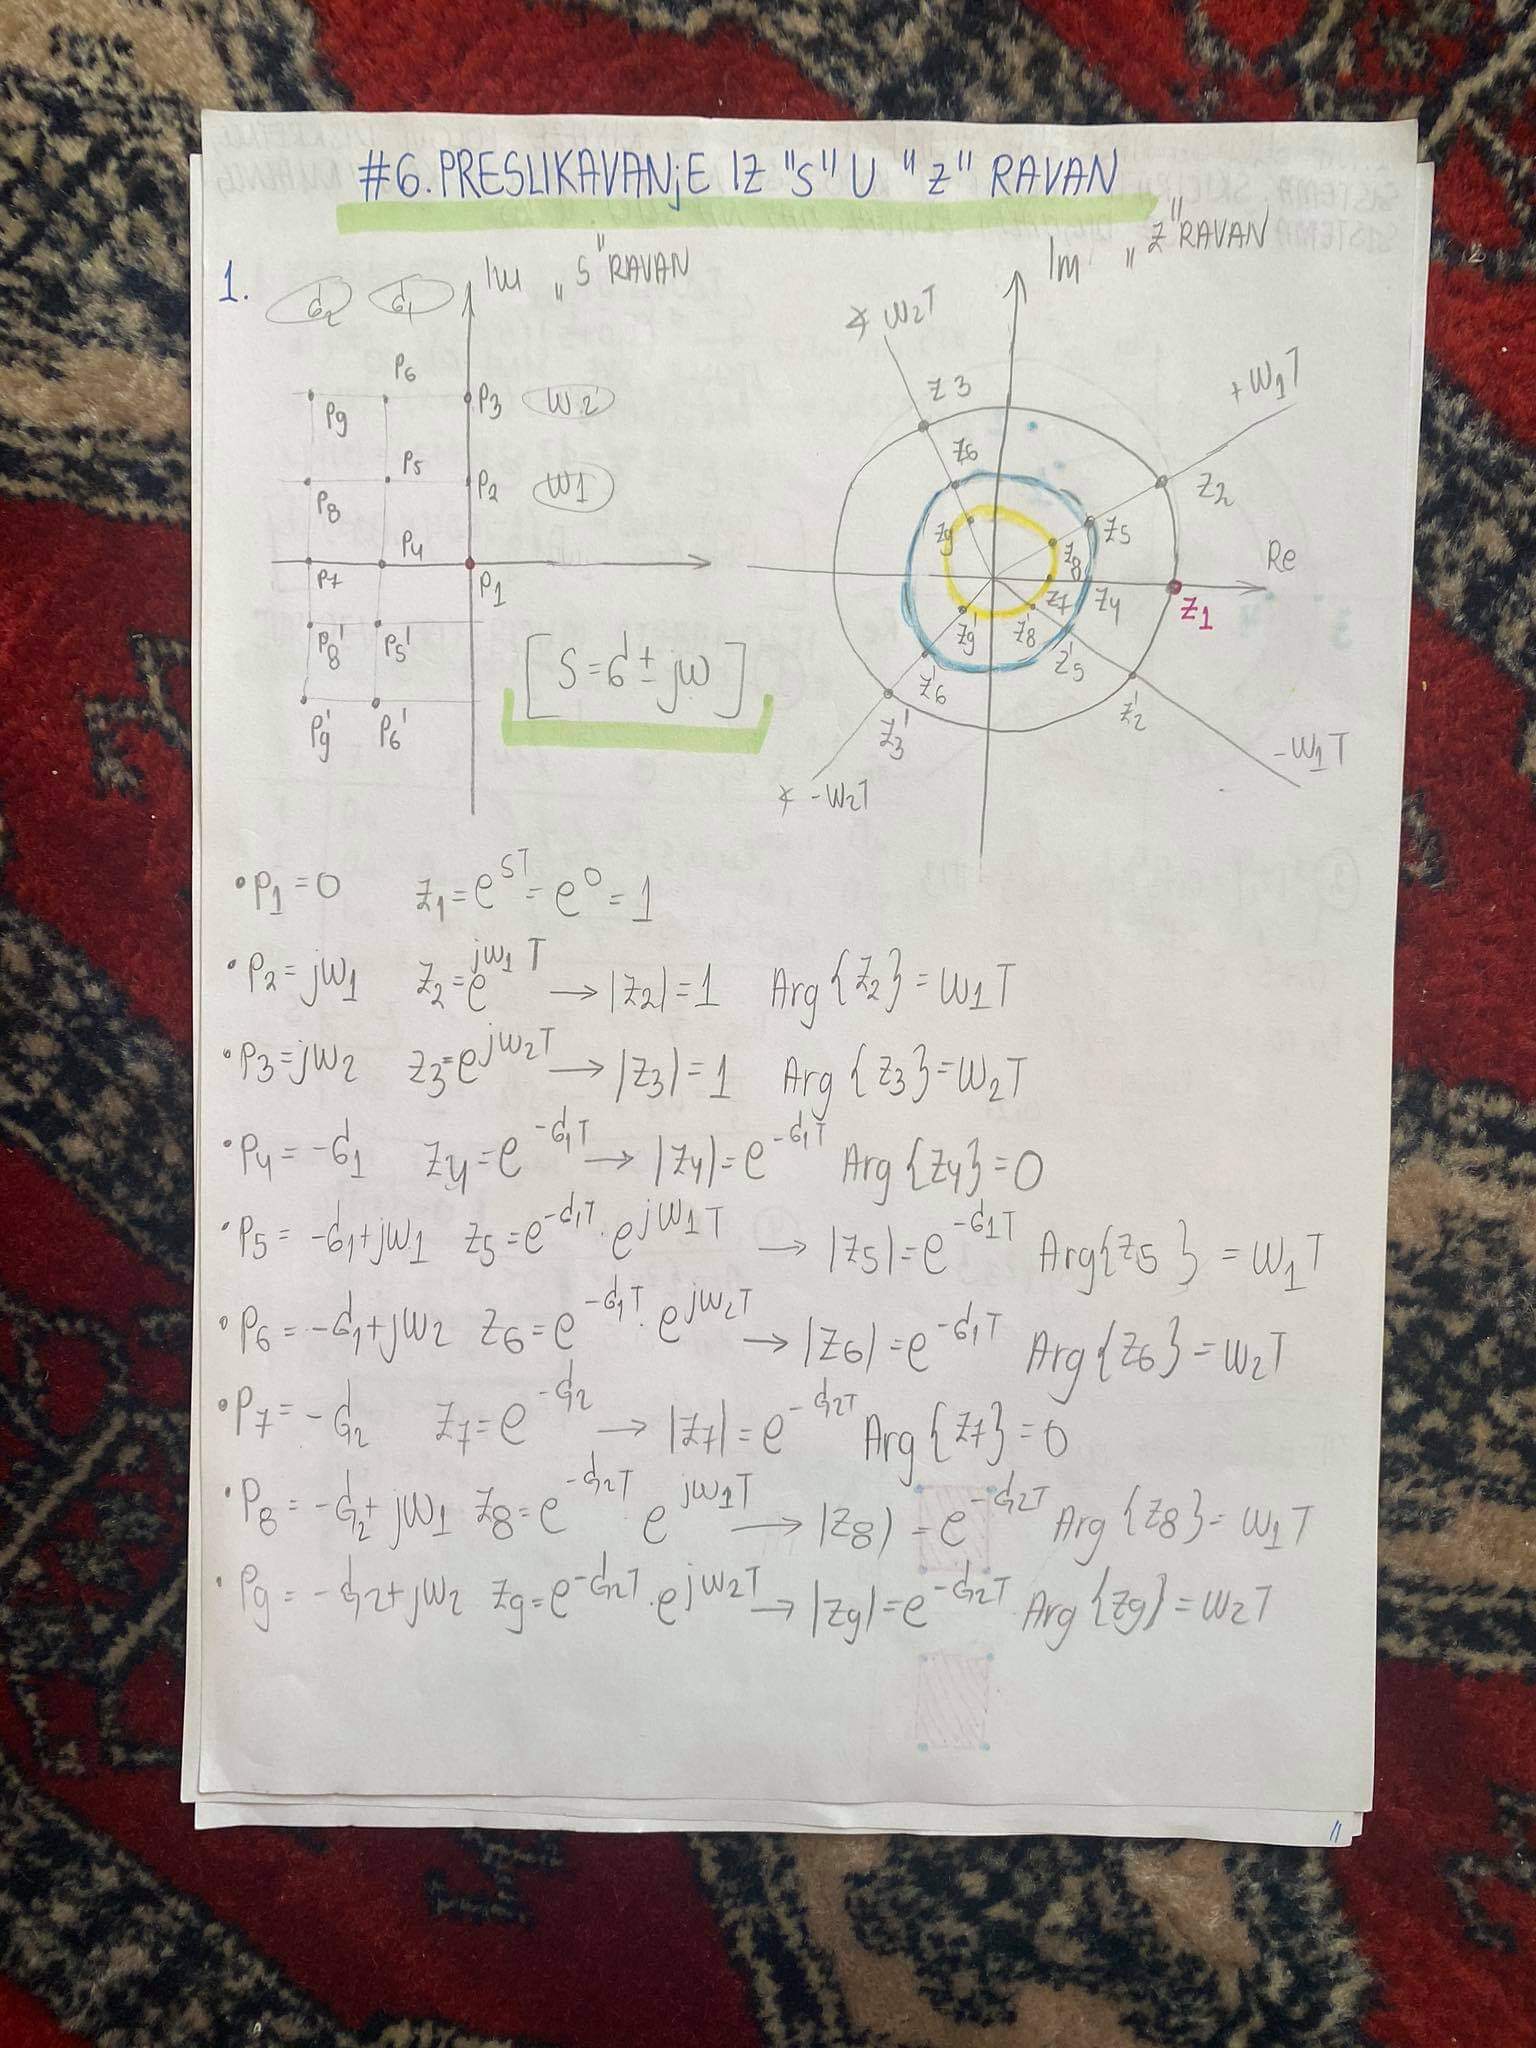 #6. PRESLIKAVANjE IZ "s" U "z" RAVAN
1.
σ2 σ1 Im „S" RAVAN
P6 P3 ω2
P9
P5 P2 ω1
P8
P4 P1
P7
P8' P5'
P9' P6'
[S=σ±jω]
Im „Z" RAVAN
∡ ω2T
+ω1T
z3
z6
z2
z9 z5
z8
Re
z7 z4 z1
z9' z8'
z6' z5'
z3' z2'
-ω1T
∡ -ω2T
• P1=0 z1=e^ST=e^0=1
• P2=jω1 z2=e^jω1T → |z2|=1 Arg{z2}=ω1T
• P3=jω2 z3=e^jω2T → |z3|=1 Arg{z3}=ω2T
• P4=-σ1 z4=e^-σ1T → |z4|=e^-σ1T Arg{z4}=0
• P5=-σ1+jω1 z5=e^-σ1T·e^jω1T → |z5|=e^-σ1T Arg{z5}=ω1T
• P6=-σ1+jω2 z6=e^-σ1T·e^jω2T → |z6|=e^-σ1T Arg{z6}=ω2T
• P7=-σ2 z7=e^-σ2 → |z7|=e^-σ2T Arg{z7}=0
• P8=-σ2+jω1 z8=e^-σ2T e^jω1T → |z8)=e^-σ2T Arg{z8}=ω1T
• P9=-σ2+jω2 z9=e^-σ2T·e^jω2T → |z9|=e^-σ2T Arg{z9}=ω2T
11